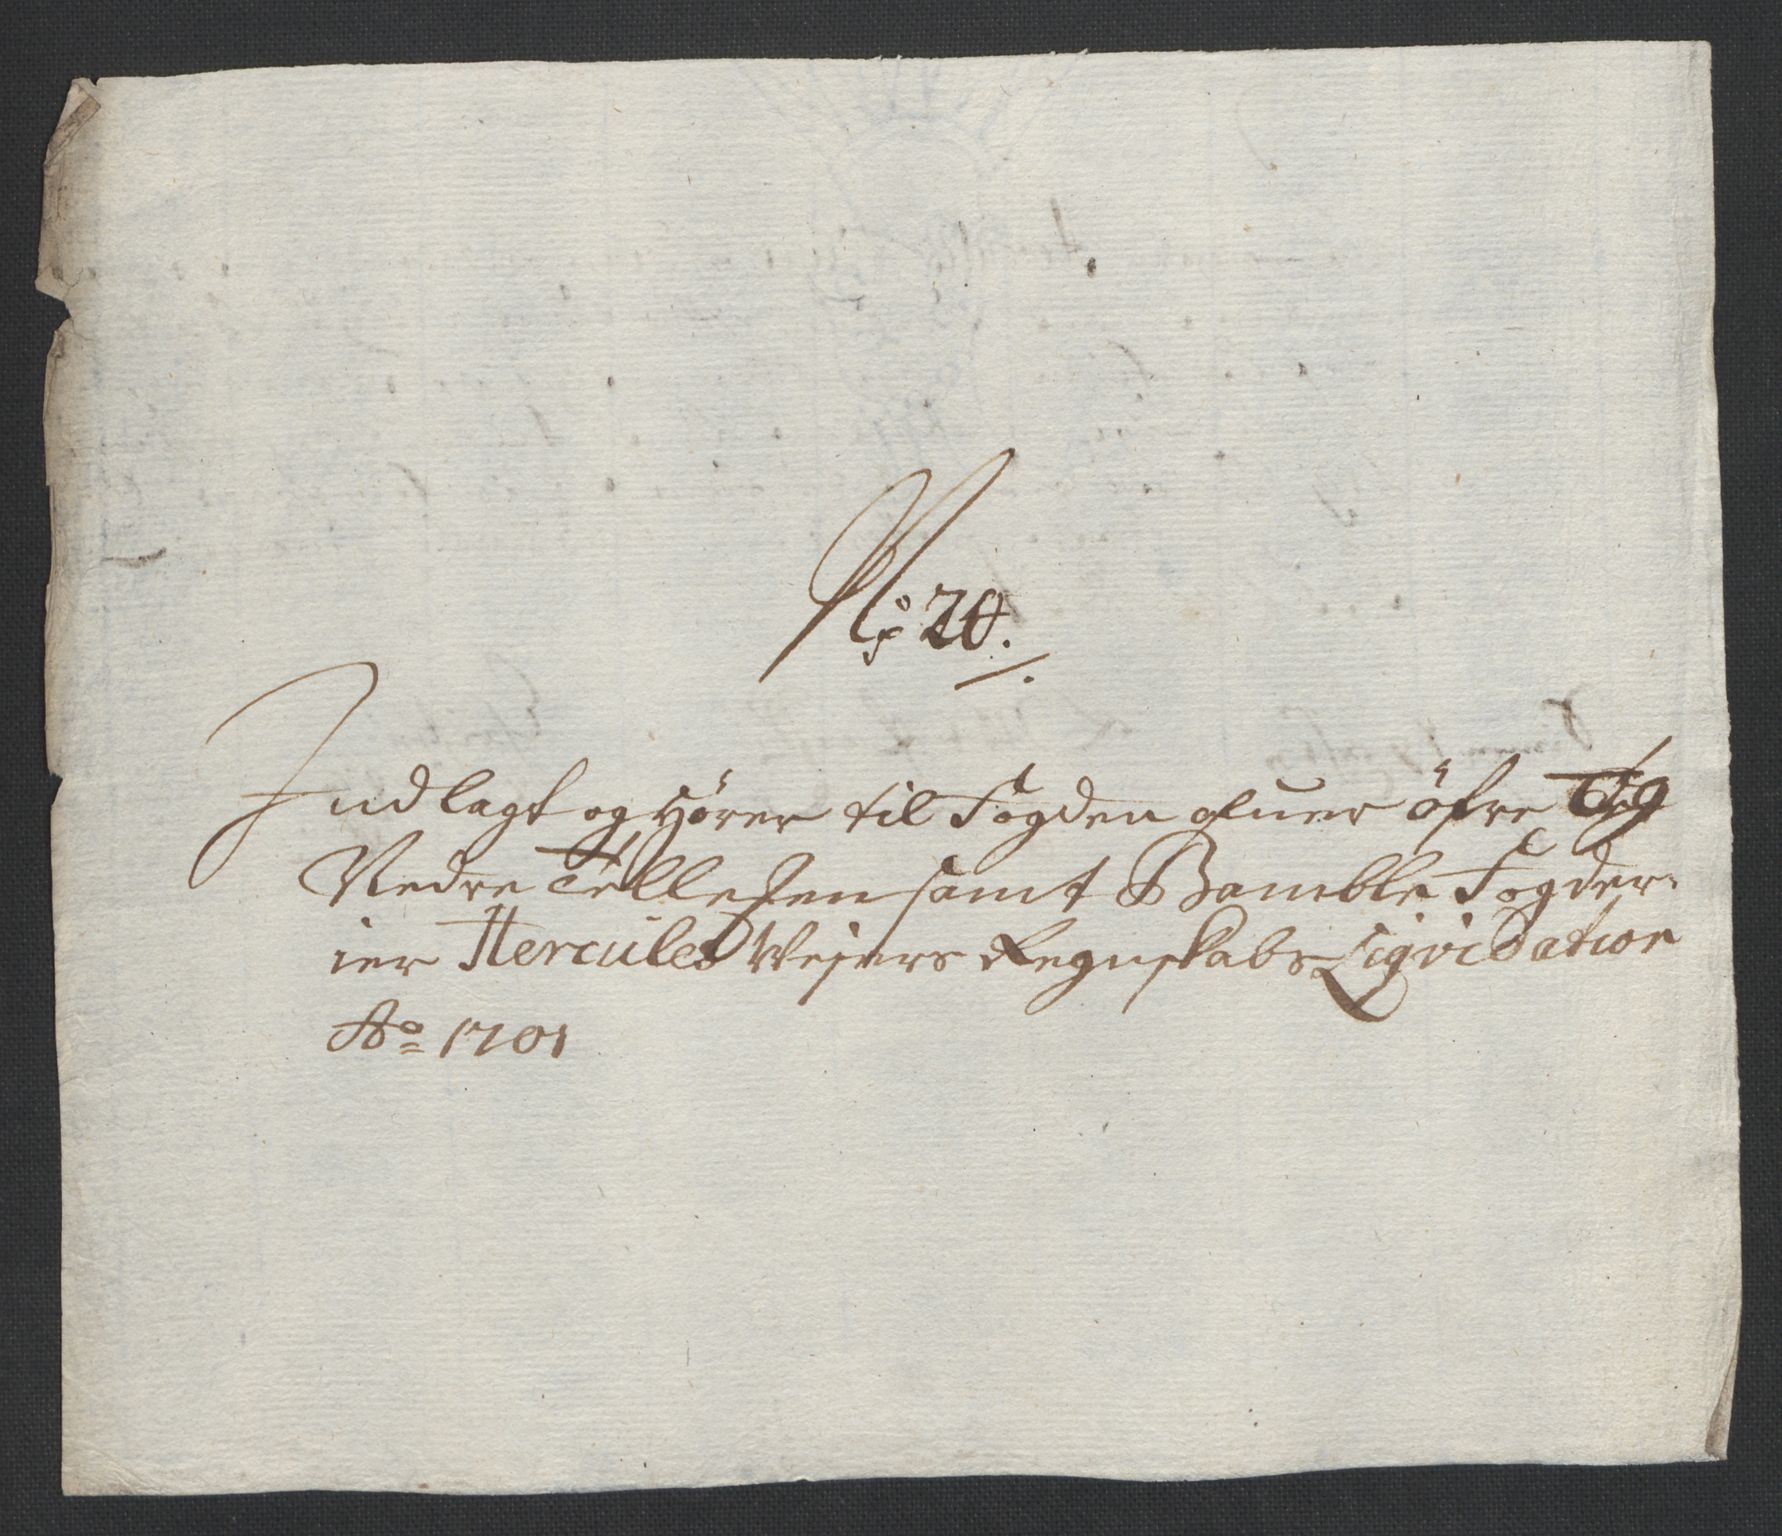 No: 20.
Indlagt og Hører til Fogden ofuer öfre Og
Nedre Tellemen samt Bamble Fogder-
ier Hercules Weyers Regnskabs Liqvidation
Ao 1701